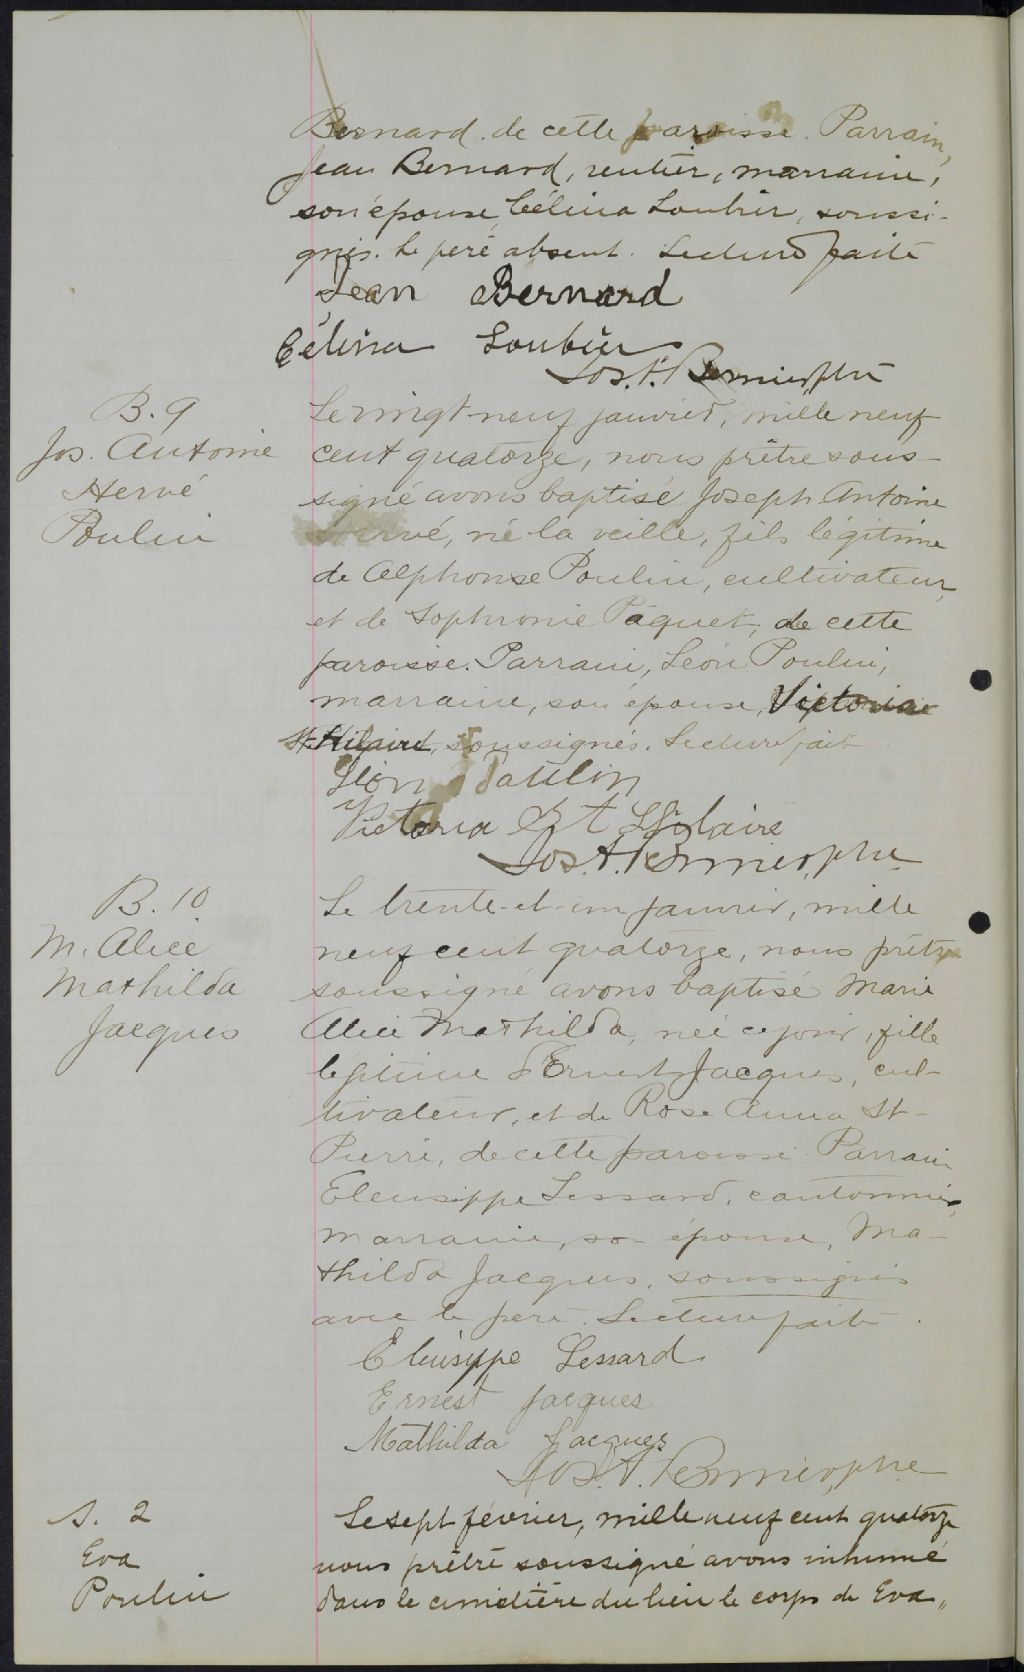 Bernard, de cette paroisse. Parrain,
Jean Bernard, rentier, marraine,
son épouse, Célina Loubier, soussi-
gnés. Le père absent. Lecture faite
Jean Bernard
Célina Loubier
Jos. A. Bernier, ptre
B. 9
Jos. Antoine
Hervé
Poulin
Le vingt-neuf janvier, mille neuf
cent quatorze, nous prêtre sous-
signé avons baptisé Joseph Antoine
Hervé, né la veille, fils légitime
de Alphonse Poulin, cultivateur,
et de Sophronie Paquet, de cette
paroisse. Parrain, Léon Poulin,
marraine, son épouse, Victoria
St-Hilaire, soussignés. Lecture faite
Léon Poulin
Victoria St Hilaire
Jos. A. Bernier, ptre
B. 10
M. Alice
Mathilda
Jacques
Le trente-et-un janvier, mille
neuf cent quatorze, nous prêtre
soussigné avons baptisé Marie
Alice Mathilda, née ce jour, fille
légitime d'Ernest Jacques, cul-
tivateur, et de Rose Anna St-
Pierre, de cette paroisse. Parrain
Eleusippe Lessard, cantonnier,
marraine, son épouse, Ma-
thilda Jacques, soussignés
avec le père. Lecture faite.
Eleusippe Lessard
Ernest Jacques
Mathilda Jacques
Jos. A. Bernier, ptre
S. 2
Eva
Poulin
Le sept février, mille neuf cent quatorze
nous prêtre soussigné avons inhumé
dans le cimetière du lieu le corps de Eva,,